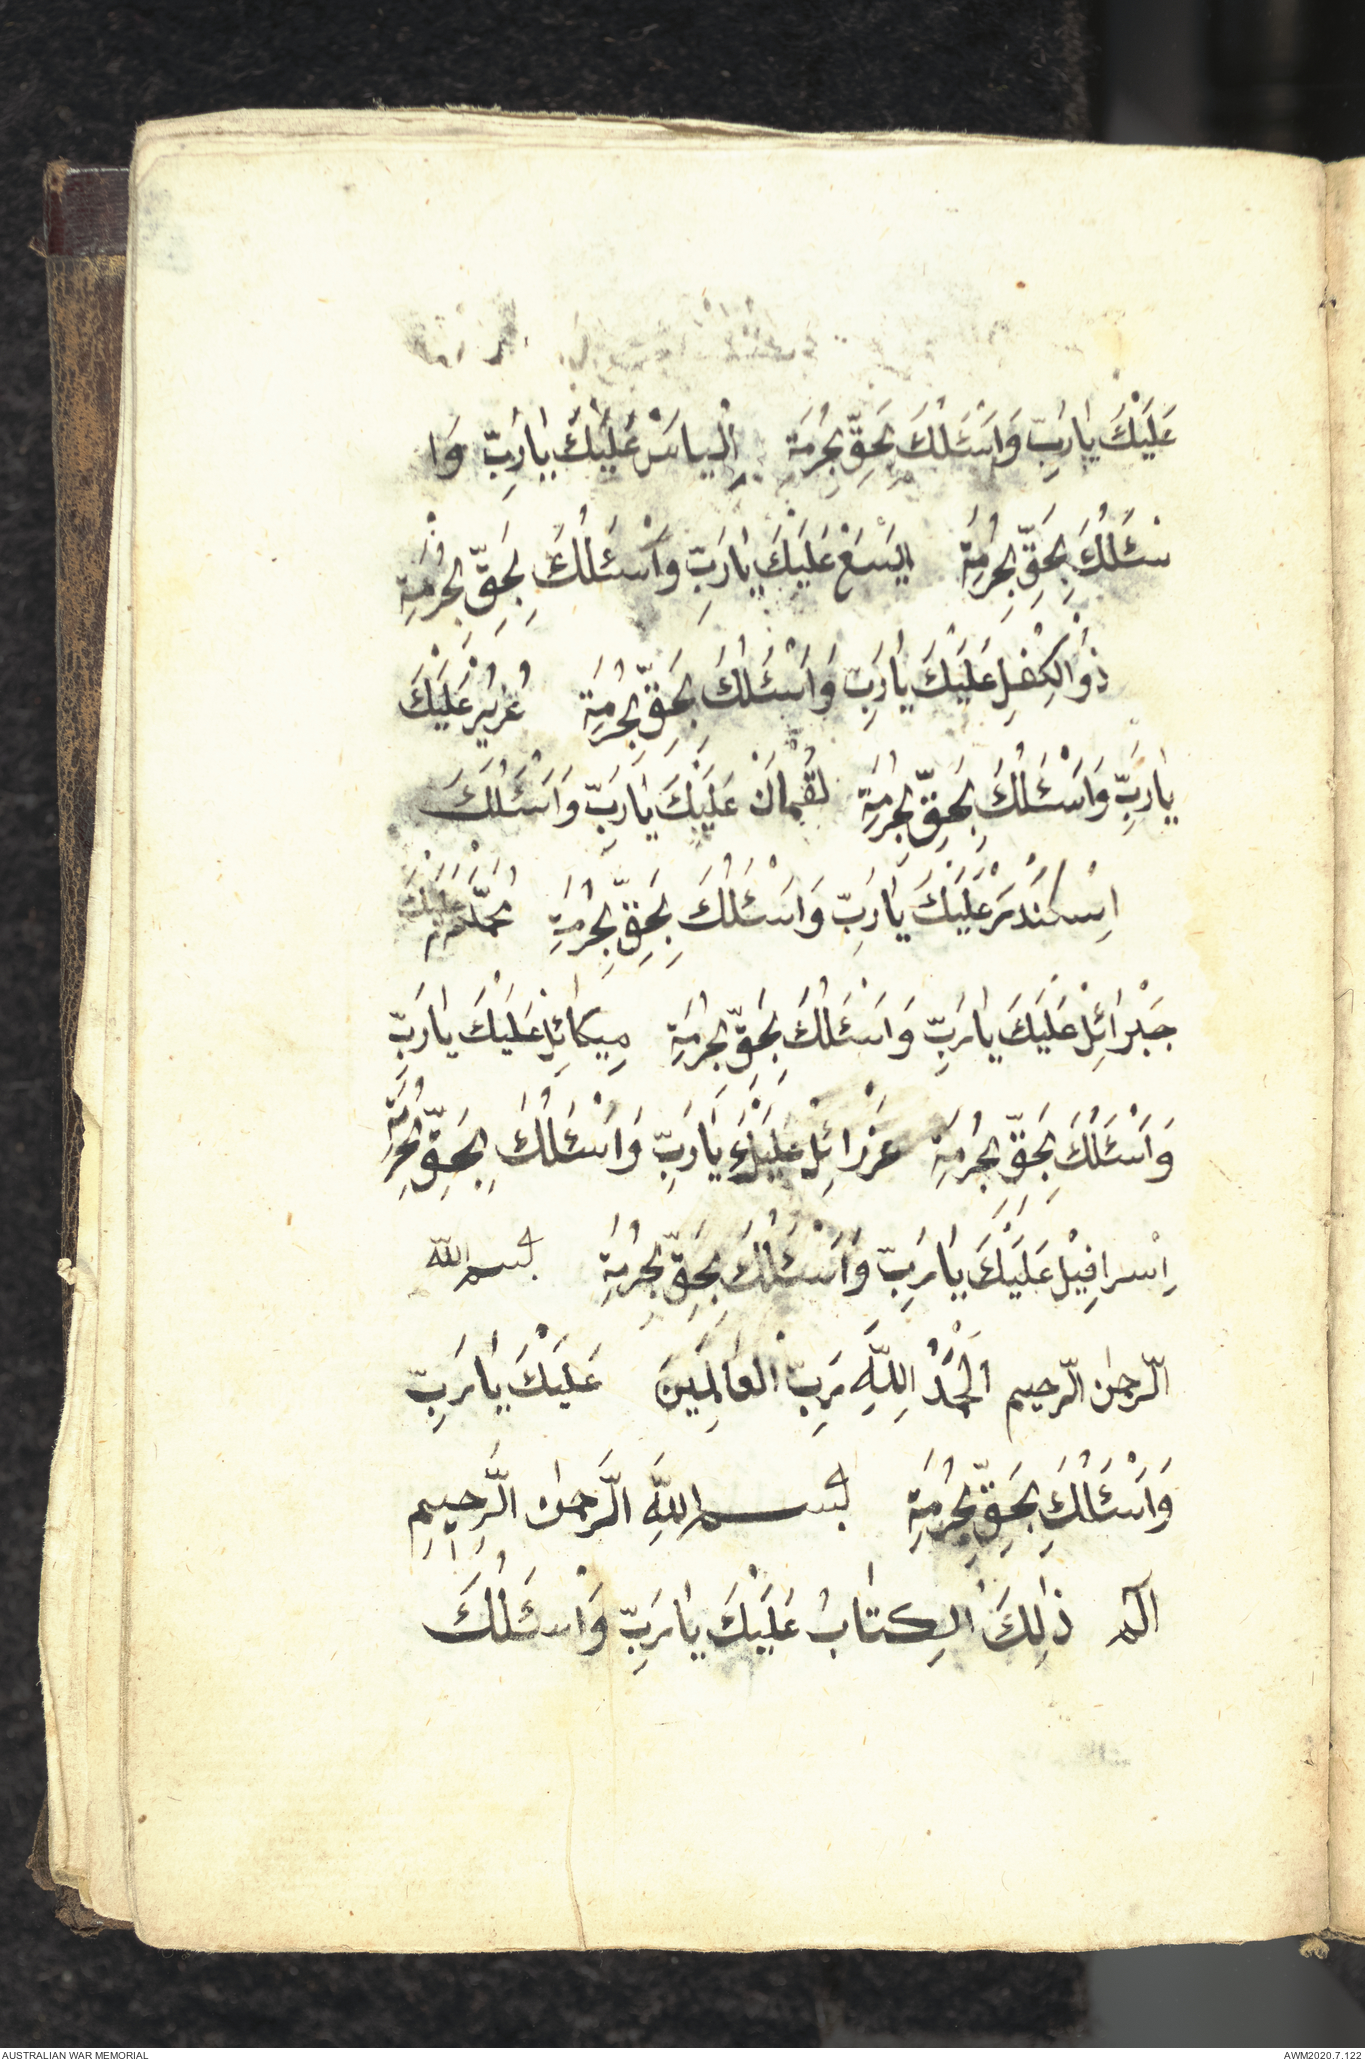 عَلَيْكَ يٰارَبِّ وَاَسْئَلُكَ بِحَقِّ بِحُرْمَةِ اِلْيٰاسْ عَلَيْكَ يٰارَبِّ وَا
سْئَلُكَ بِحَقِّ بِحُرْمَةِ اليَسَعْ عَلَيْكَ يٰارَبِّ وَاَسْئَلُكَ بِحَقِّ بِحُرْمَةِ
ذُو الْكِفْلِ عَلَيْكَ يٰارَبِّ وَاَسْئَلُكَ بِحَقِّ بِحُرْمَةِ عُزَيْرْ عَلَيْكَ
يٰارَبِّ وَاَسْئَلُكَ بِحَقِّ بِحُرْمَةِ لُقْمٰانْ عَلَيْكَ يٰارَبِّ وَاَسْئَلُكَ
اِسْكَنْدَرْ عَلَيْكَ يٰارَبِّ وَاَسْئَلُكَ بِحَقِّ بِحُرْمَةِ مُحَمَّدْ عَلَيْكَ
جَبْرَائِلْ عَلَيْكَ يٰارَبِّ وَاَسْئَلُكَ بِحَقِّ بِحُرْمَةِ مِيكَائِلْ عَلَيْكَ يٰارَبِّ
وَاَسْئَلُكَ بِحَقِّ بِحُرْمَةِ عَزْرَائِلْ عَلَيْكَ يٰارَبِّ وَاَسْئَلُكَ بِحَقِّ بِحُرْمَةِ
اِسْرافِيْلْ عَلَيْكَ يٰارَبِّ وَاَسْئَلُكَ بِحَقِّ بِحُرْمَةِ بسم الله
الرّحمٰن الرّحيم اَلْحَمْدُ لِلّٰهِ رَبِّ الْعٰالَمِينَ عَلَيْكَ يٰارَبِّ
وَاَسْئَلُكَ بِحَقِّ بِحُرْمَةِ بسم اللهِ الرَّحمٰن الرَّحِيمِ
الٓمٓ ذٰلِكَ الْكِتٰابُ عَلَيْكَ يٰارَبِّ وَاَسْئَلُكَ
AUSTRALIAN WAR MEMORIAL
AWM2020.7.122